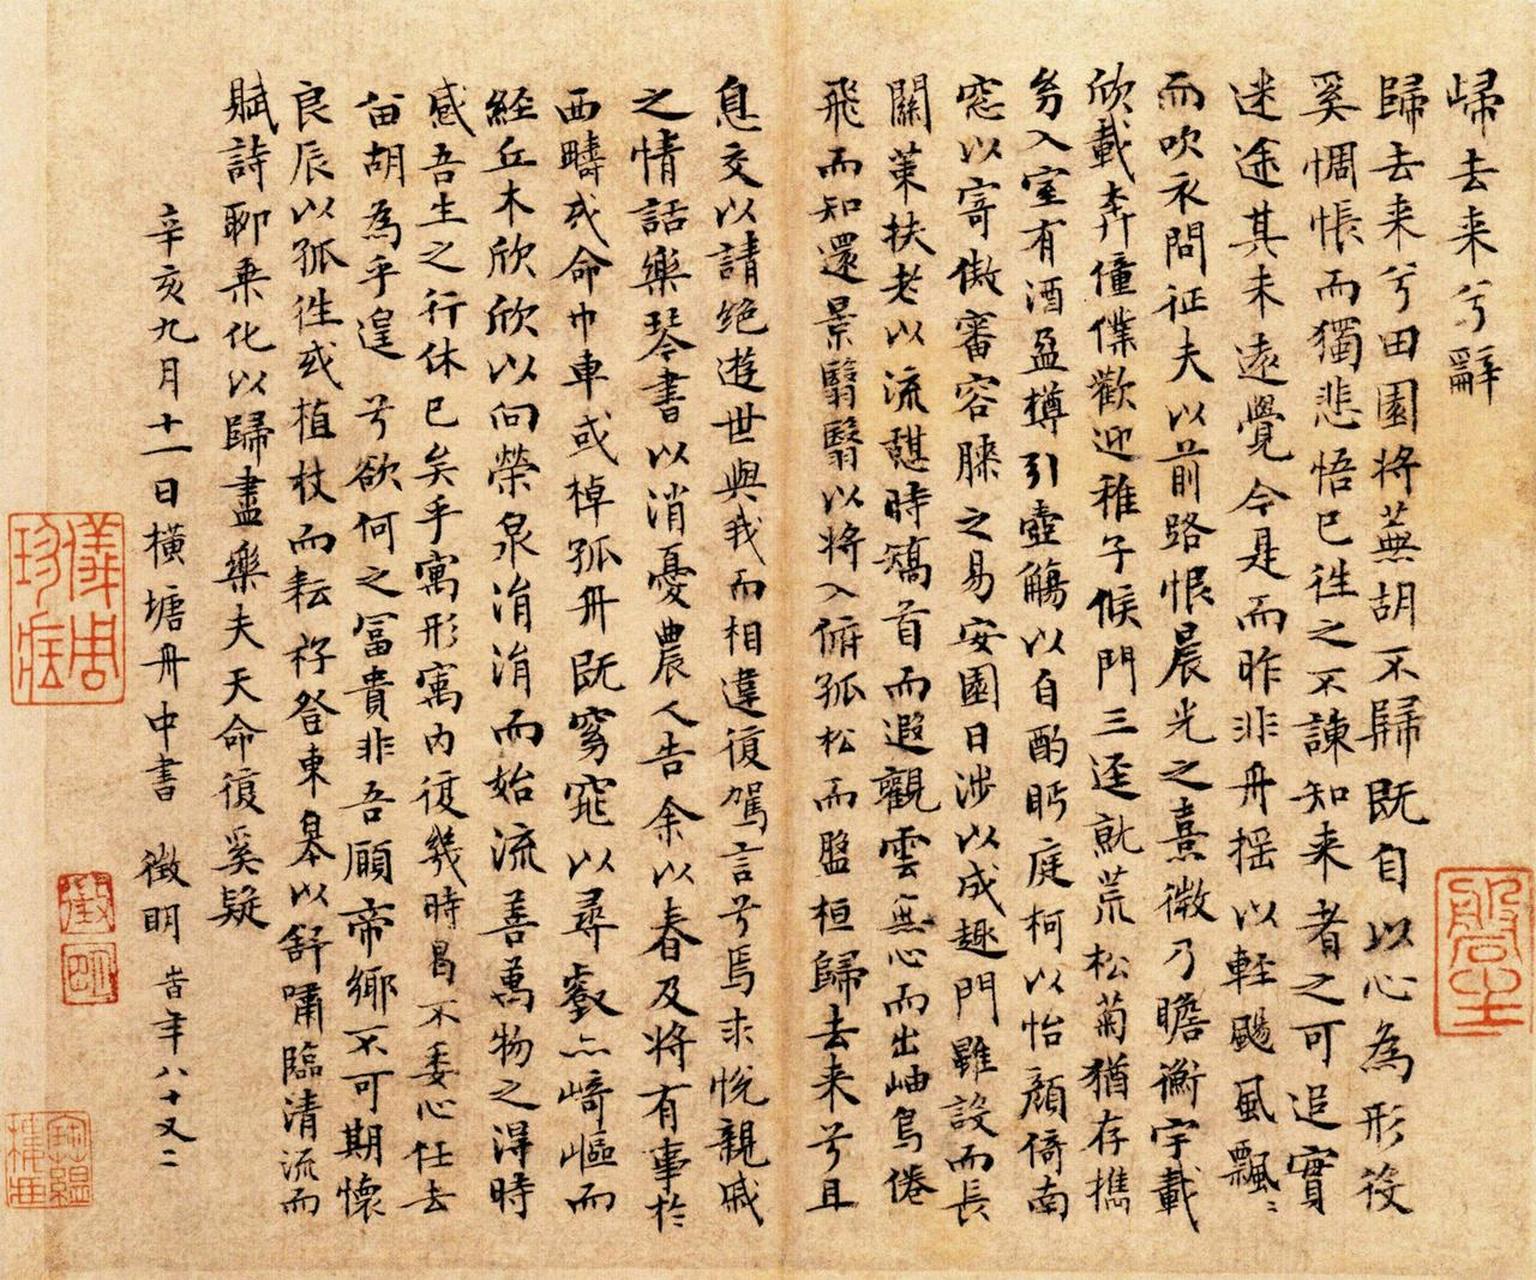 歸去来兮辭
歸去来兮田園将蕪胡不歸既自以心為形役
奚惆悵而獨悲悟已往之不諫知来者之可追實
迷途其未遠覺今是而昨非舟揺以軽颺風飄〻
而吹衣問征夫以前路恨晨光之熹微乃瞻衡宇載
欣載奔僮僕歡迎稚子候門三逕就荒松菊猶存携
幼入室有酒盈樽引壺觴以自酌眄庭柯以怡顔倚南
窓以寄傲審容膝之易安園日涉以成趣門雖設而長
關策扶老以流憩時矯首而遐觀雲無心而出岫鳥倦
飛而知還景翳翳以将入俯孤松而盤桓歸去来兮且
息交以請絶遊世與我而相違復駕言兮焉求悅親戚
之情話樂琴書以消憂農人告余以春及将有事於
西疇或命巾車或棹孤舟既窈窕以尋壑亦崎嶇而
経丘木欣欣以向榮泉涓涓而始流善萬物之得時
感吾生之行休已矣乎寓形寓内復幾時曷不委心任去
留胡為乎遑兮欲何之冨貴非吾願帝鄉不可期懷
良辰以孤往或植杖而耘耔登東皋以舒嘯臨清流而
賦詩聊乗化以歸盡樂夫天命復奚疑
辛亥九月十一日横塘舟中書 徵明 旹年八十又二
徵
明
儀周珍藏